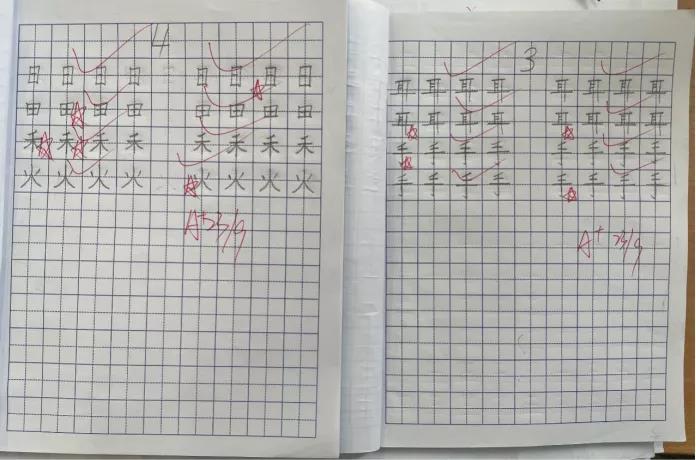 4
日 日 日 日 日 日 日 日
田 田 田 田 田 田 田 田
禾 禾 禾 禾 禾 禾 禾 禾
火 火 火 火 火 火 火 火
A+ 23/9
3
耳 耳 耳 耳 耳 耳 耳 耳
耳 耳 耳 耳 耳 耳 耳 耳
手 手 手 手 手 手 手 手
手 手 手 手 手 手 手 手
A+ 23/9